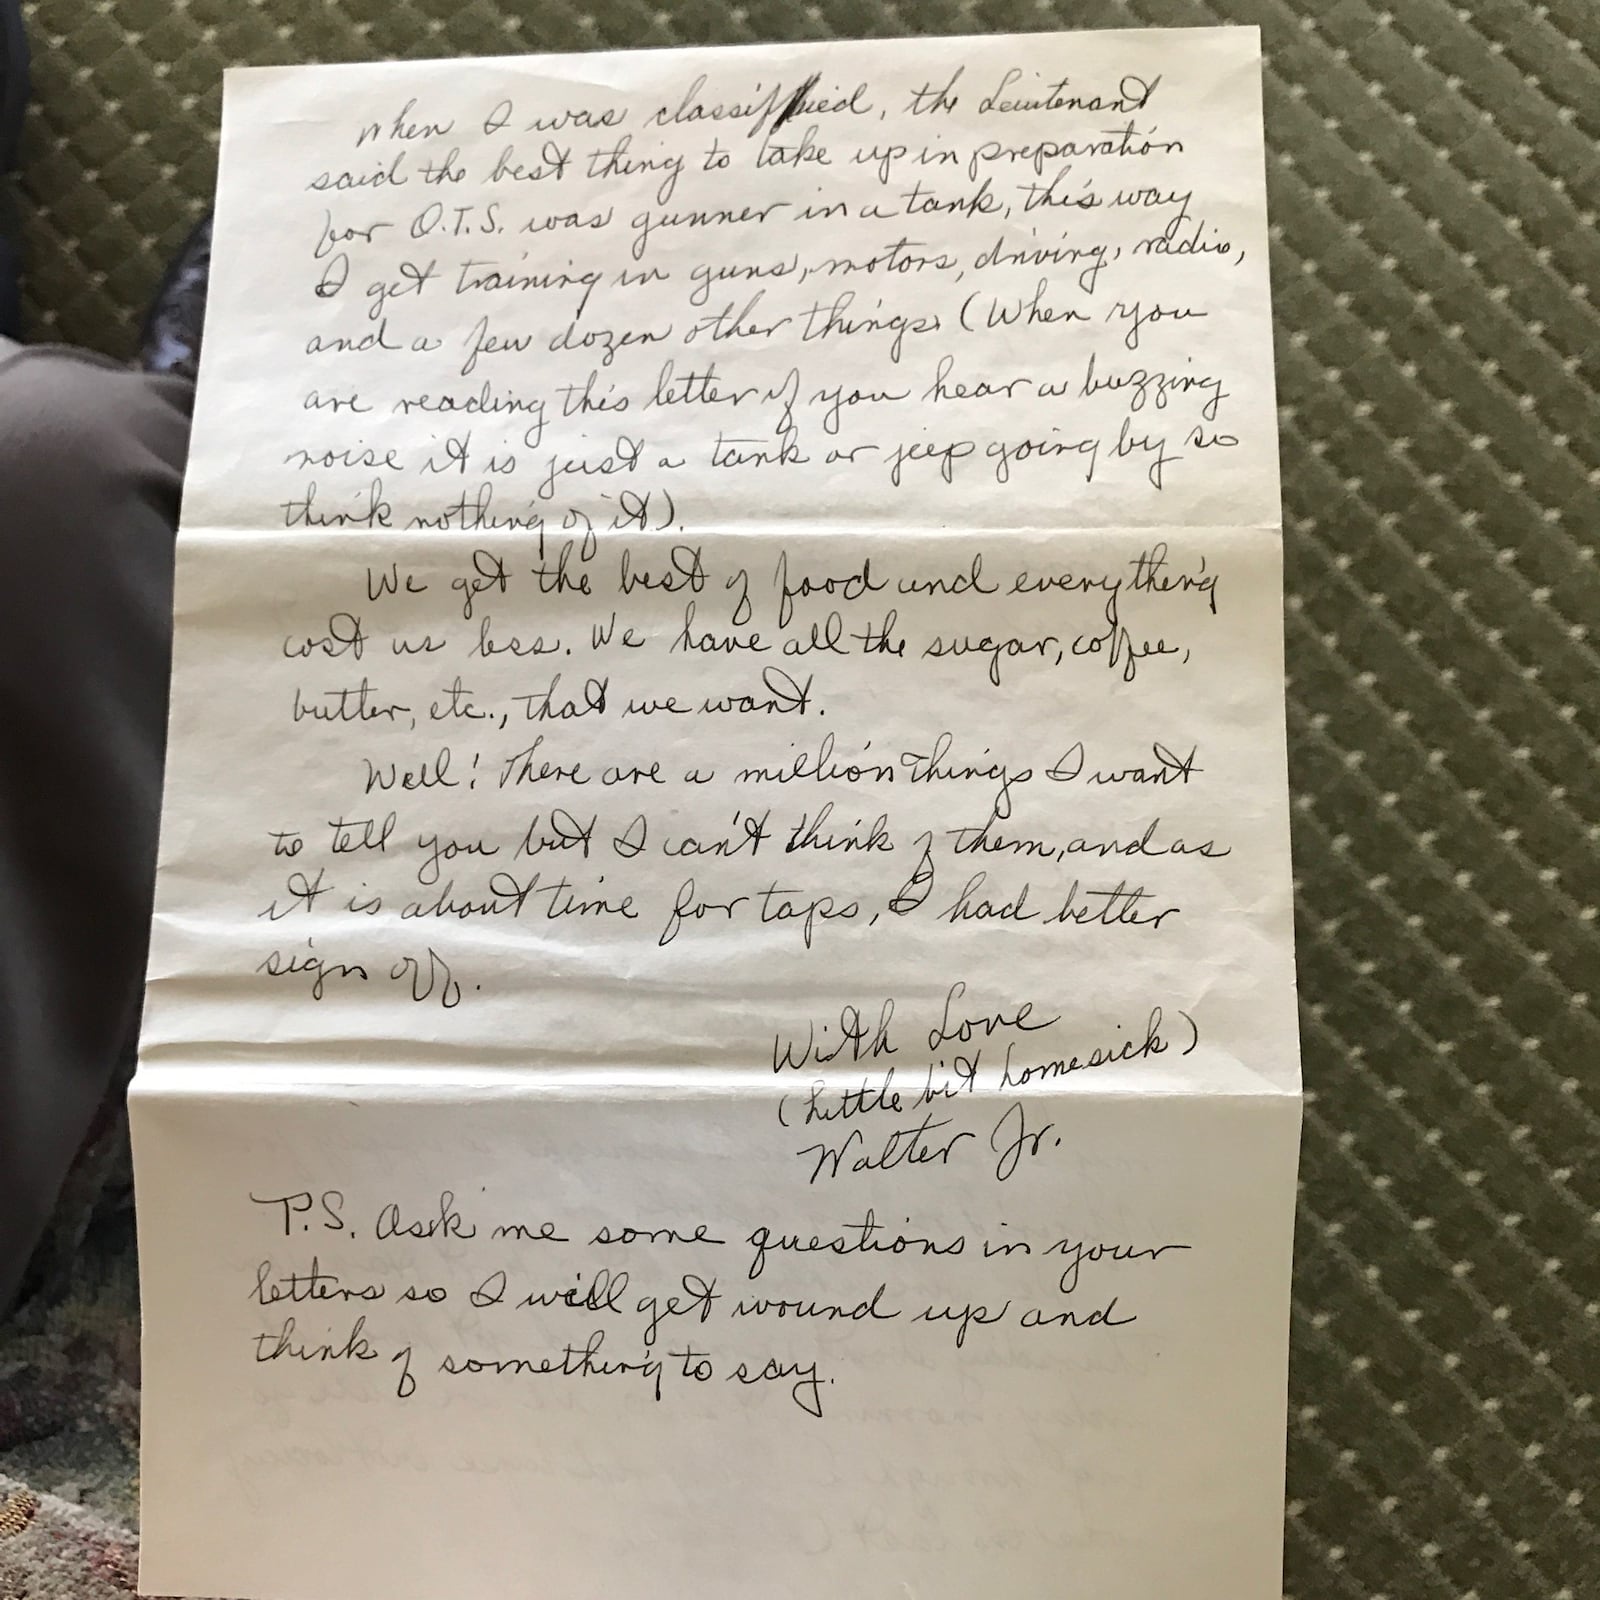 When I was classified, the Lieutenant
said the best thing to take up in preparation
for O.T.S. was gunner in a tank, this way
I get training in guns, motors, driving, radio,
and a few dozen other things. (When you
are reading this letter if you hear a buzzing
noise it is just a tank or jeep going by so
think nothing of it).
We get the best of food and everything
cost us less. We have all the sugar, coffee,
butter, etc., that we want.
Well! There are a million things I want
to tell you but I can't think of them, and as
it is about time for taps, I had better
sign off.
With Love
(little bit homesick)
Walter Jr.
P.S. Ask me some questions in your
letters so I will get wound up and
think of something to say.